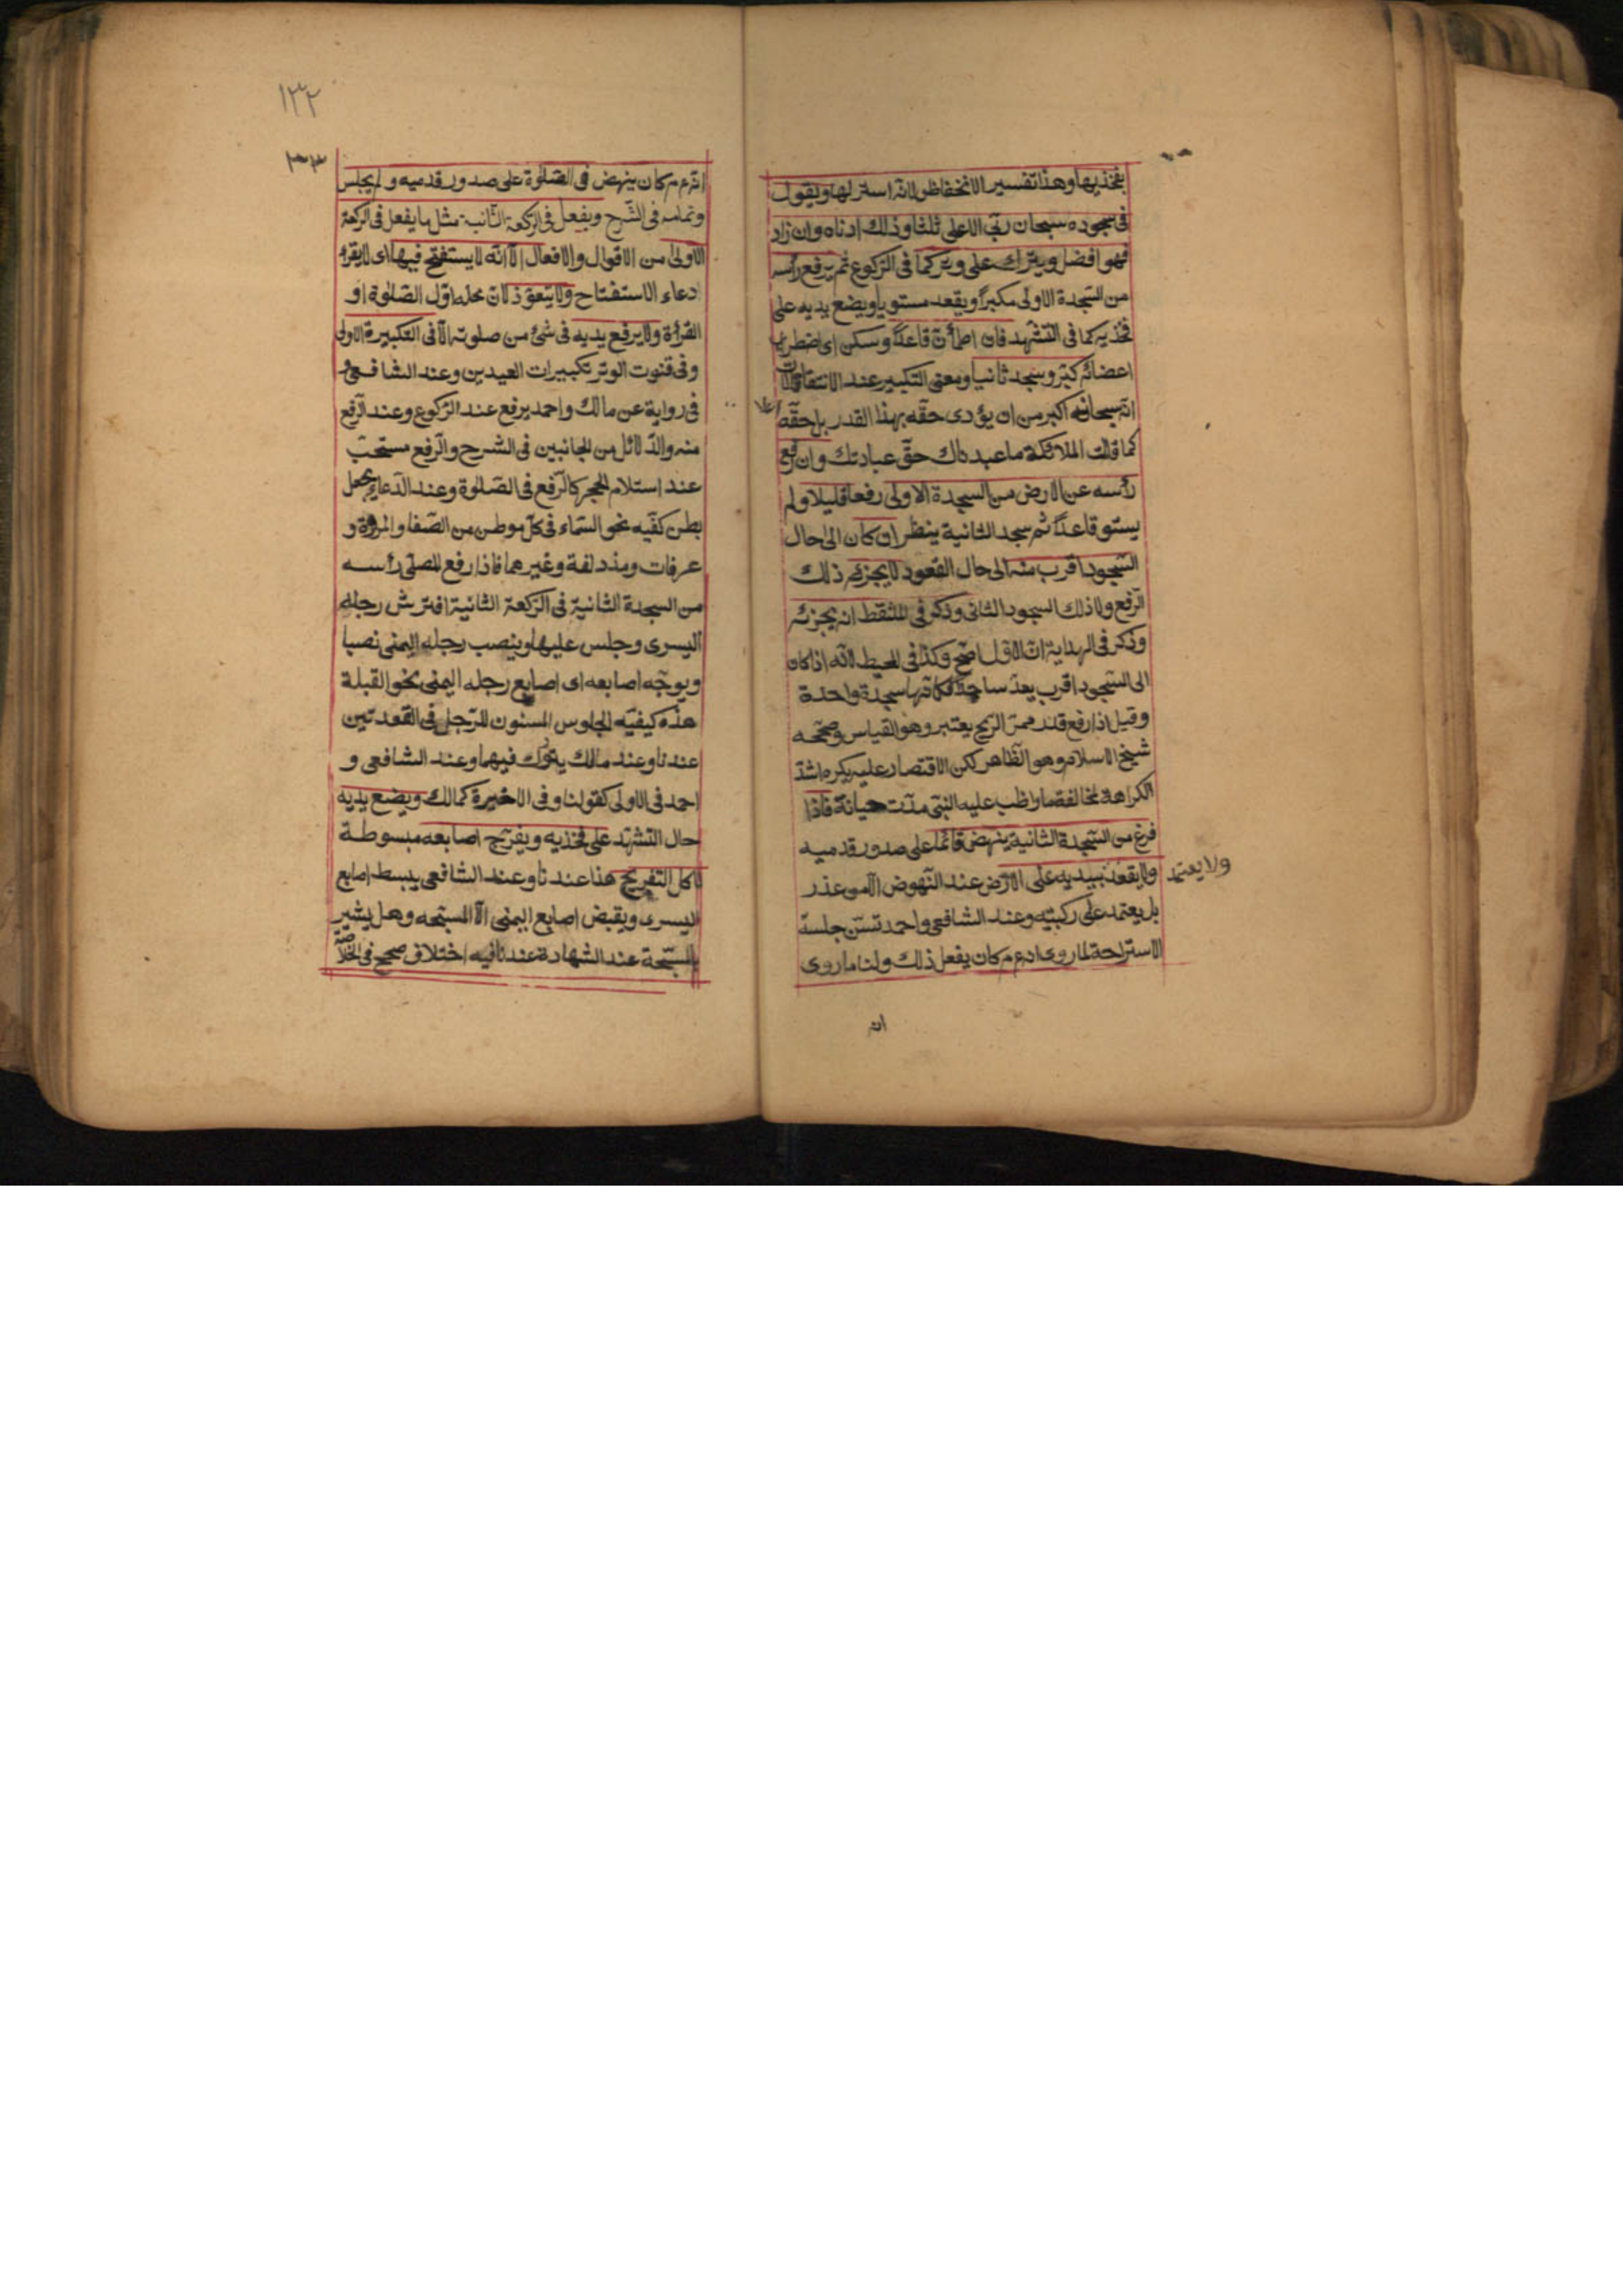 بفخذيها وهذا تفسير الانخفاض لانه استر لها ويقول
فى سجوده سبحان ربى الاعلى ثلثا وذلك ادناه وان زاد
فهو افضل ويترك على وتر كما فى الركوع ثم يرفع رأسه
من السجدة الاولى مكبرا ويقعد مستويا ويضع يديه على
فخذيه كما فى التشهد فان اطمأن قاعدا وسكن اى اضطراب
اعضائه كبر وسجد ثانيا ومعنى التكبير عند الانتقالات
انه سبحانه اكبر من ان يؤدى حقه بهذا القدر بل حقه
كما قالت الملائكة ما عبدناك حق عبادتك وان رفع
رأسه عن الارض من السجدة الاولى رفعا قليلا ولم
يستو قاعدا ثم سجد الثانية ينظر ان كان الى حال
السجود اقرب منه الى حال القعود لا يجزئه ذلك
الرفع ولا ذلك السجود الثانى وذكر فى الملتقط انه يجزئه
وذكر فى الهداية ان الاول اصح وكذا فى المحيط لانه اذا كان
الى السجود اقرب يعد ساجدا فكانها سجدة واحدة
وقيل اذا رفع قدر ممر الريح يعتبر وهو القياس وصححه
شيخ الاسلام وهو الظاهر لكن الاقتصار عليه يكره اشد
الكراهة لمخالفة ما واظب عليه النبى مدت حياته فاذا
فرغ من السجدة الثانية ينهض قائما على صدور قدميه
ولا يعتمد
ولا يقعد بيديه على الارض عند النهوض الا من عذر
بل يعتمد على ركبتيه وعند الشافعى واحمد تسن جلسة
الاستراحة لما روى انه ع م كان يفعل ذلك ولنا ما روى
انه
١٣٢
انه ع م كان ينهض فى الصلوة على صدور قدميه ولم يجلس
وتمامه فى الشرح ويفعل فى الركعة الثانية مثل ما يفعل فى الركعة
الاولى من الاقوال والافعال الا انه لا يستفتح فيها اى لا يقرأ
دعاء الاستفتاح ولا يتعوذ لان محله اول الصلوة او
القرأة ولا يرفع يديه فى شئ من صلوته الا فى التكبيرة الاولى
وفى قنوت الوتر تكبيرات العيدين وعند الشافعى و
فى رواية عن مالك واحمد يرفع عند الركوع وعند الرفع
منه والدلائل من الجانبين فى الشرح والرفع مستحب
عند استلام الحجر كالرفع فى الصلوة وعند الدعاء يجعل
بطن كفيه نحو السماء فى كل موطن من الصفا والمروة و
عرفات ومزدلفة وغيرهما فاذا رفع المصلى رأسه
من السجدة الثانية فى الركعة الثانية افترش رجله
اليسرى وجلس عليها وينصب رجله اليمنى نصبا
ويوجه اصابعه اى اصابع رجله اليمنى نحو القبلة
هذه كيفية الجلوس المسنون للرجل فى القعدتين
عندنا وعند مالك يتورك فيهما وعند الشافعى و
احمد فى الاولى كقولنا وفى الاخيرة كمالك ويضع يديه
حال التشهد على فخذيه ويفرج اصابعه مبسوطة
لا كل التفريج هذا عندنا وعند الشافعى يبسط اصابع
اليسرى ويقبض اصابع اليمنى الا المسبحة وهل يشير
بالمسبحة عند الشهادة عندنا فيه اختلاف صحح فى الخلاصة